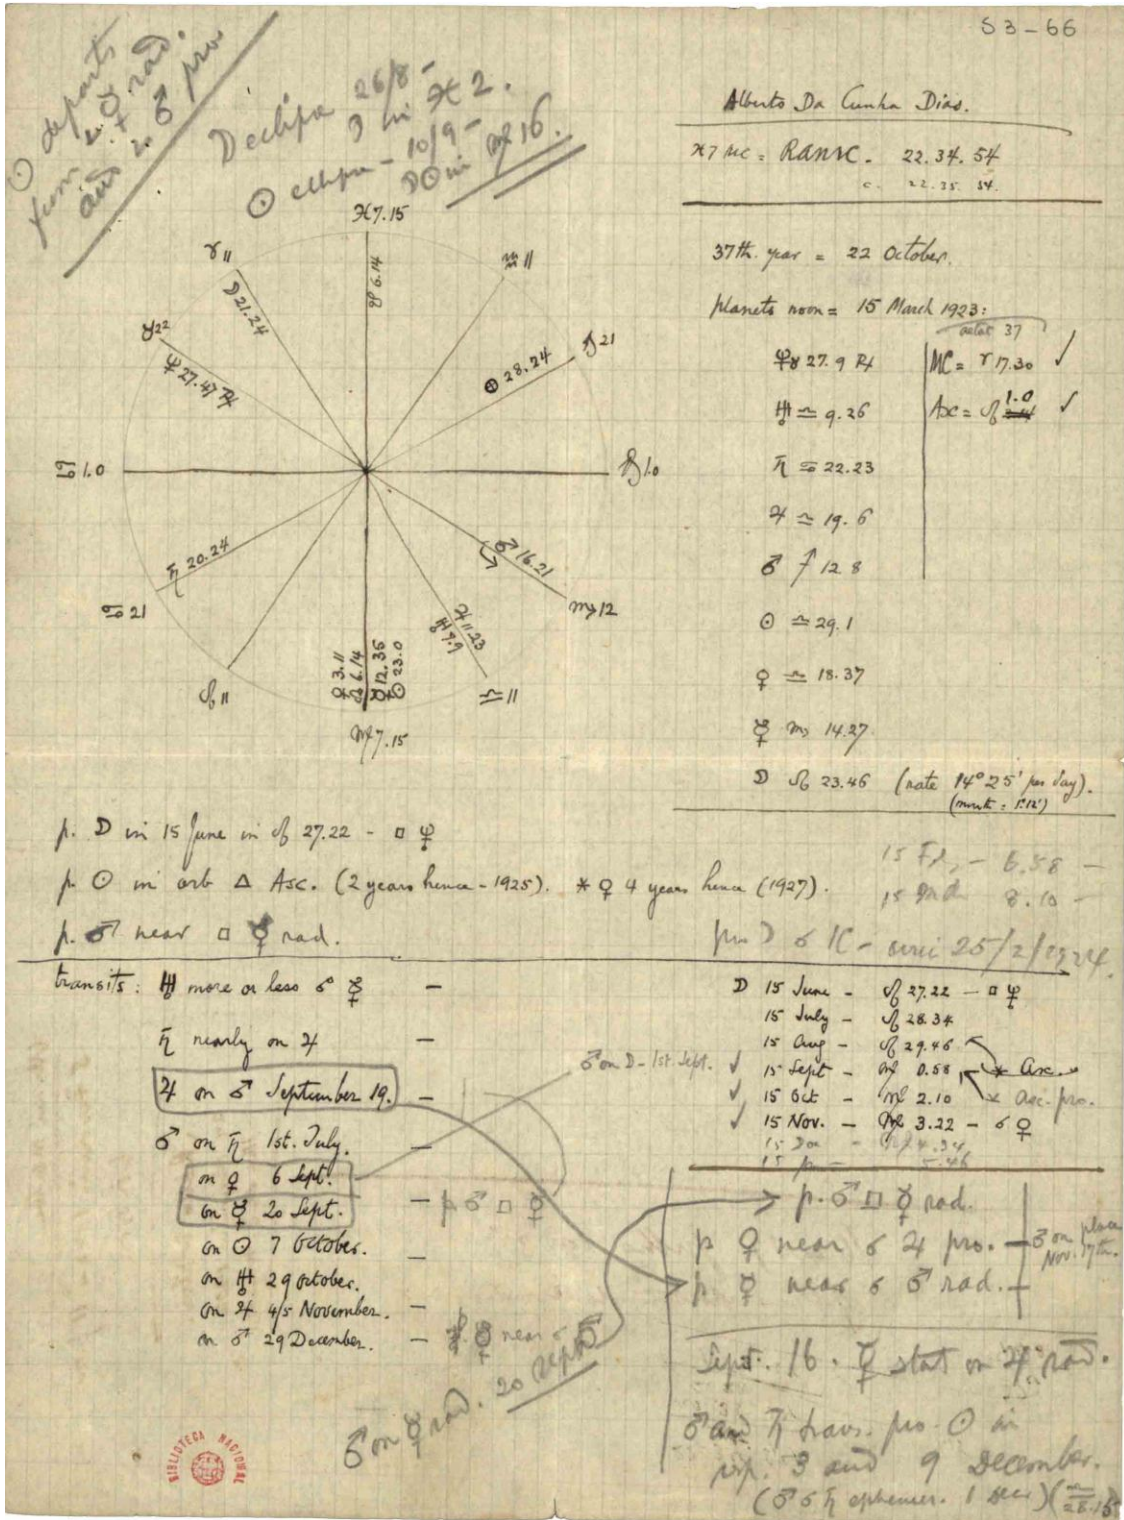 S3-66
☉ departs
from ☍ ☿ rad.
and ☍ ♂ pro
Declipa 26/8 -
☽ in ♓ 2.
☉ - 10/9 -
☽☉ in ♍ 16.
Alberto Da Cunha Dias.
♓7 MC = RAMC. 22.34.54
c. 22.35.54.
37th. year = 22 October.
planets noon = 15 March 1923:
aetat 37
♆ ♉ 27.9 ℞
MC = ♈ 17.30 ✓
♅ ♎ 9.26
Asc = ♌ 1.0 ✓
♄ ♋ 22.23
♃ ♎ 19.6
♂ ♐ 12 8
☉ ♎ 29.1
♀ ♎ 18.37
☿ ♏ 14.27
☽ ♌ 23.46 (rate 14° 25' per day).
(month = 1°12')
♓7.15
♈11
♒11
☋ 6.14
☽ 21.24
♉22
♆ 27.47 ℞
♑21
⊕ 28.24
♋1.0
♑1.0
♄ 20.24
♋21
♂ 16.21
♏12
♃ 11.23
♅ 9.9
♎11
♌11
♀ 3.11
☊ 6.14
☿ 12.36
☉ 23.0
♍7.15
p. ☽ in 15 June in ♌ 27.22 - □ ♆
p. ☉ in orb △ Asc. (2 years hence - 1925). ⚹ ♀ 4 years hence (1927).
p. ♂ near □ ☿ rad.
15 - 6.58 -
15 8.10 -
pro ☽ ☌ IC - circ 25/2/1924.
transits: ♅ more or less ☌ ☿ -
♄ nearly on ♃ -
♃ on ♂ September 19. -
♂ on ♄ 1st. July. -
on ♀ 6 Sept.
on ☿ 20 Sept. - p ♂ □ ☿
on ☉ 7 October. -
on ♅ 29 October.
on ♃ 4/5 November. -
on ♂ 29 December. - p. ☿ near ☌ ♂
♂ on ☿ rad. 20 Sept.
♂ on ☽ - 1st. Sept.
☽ 15 June - ♌ 27.22 - □ ♆
15 July - ♌ 28.34
15 Aug - ♌ 29.46
✓ 15 Sept - ♍ 0.58 ⚹ Asc.
✓ 15 Oct - ♍ 2.10 ⚹ asc. pro.
✓ 15 Nov. - ♍ 3.22 - ☌ ♀
15 Dec - ♍ 4.34
15 - 5.46
p. ♂ □ ☿ rad.
p ♀ near ☌ ♃ pro. - ♂ on place Nov. 17th.
p. ☿ near ☌ ♂ rad. -
Sept. 16. ☿ stat on ♃ rad.
♂ and ♄ trans. pro. ☉ in
resp. 3 and 9 December.
(♂ ☌ ♄ ephemer. 1 Dec) (♎ 28.15
BIBLIOTECA NACIONAL